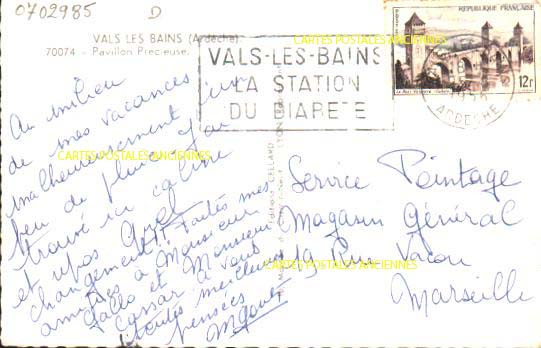 0702985
D
VALS LES BAINS (Ardèche)
70074 - Pavillon Précieuse.
VALS-LES-BAINS
LA STATION
DU DIABETE
REPUBLIQUE FRANÇAISE
12F
ARDECHE
CARTES POSTALES ANCIENNES
Au milieu
de mes vacances
malheureusement un
peu de pluie j'ai
trouvé ici calme
et repos Quel
changement!! Toutes mes
amitiés à Monsieur
Gallo et Monsieur
Cassar à vous
toutes meilleures
pensées
CARTES POSTALES ANCIENNES
Editions CELLARD
Service Peintage
Magasin Général
19 Rue Vacon
Marseille
CARTES POSTALES ANCIENNES